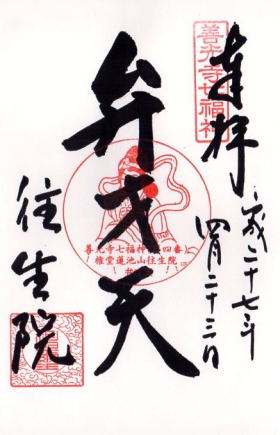 奉拝
善光寺七福神
平成二十七年
四月二十三日
弁才天
善光寺七福神
権堂蓮池山往生院
往生院